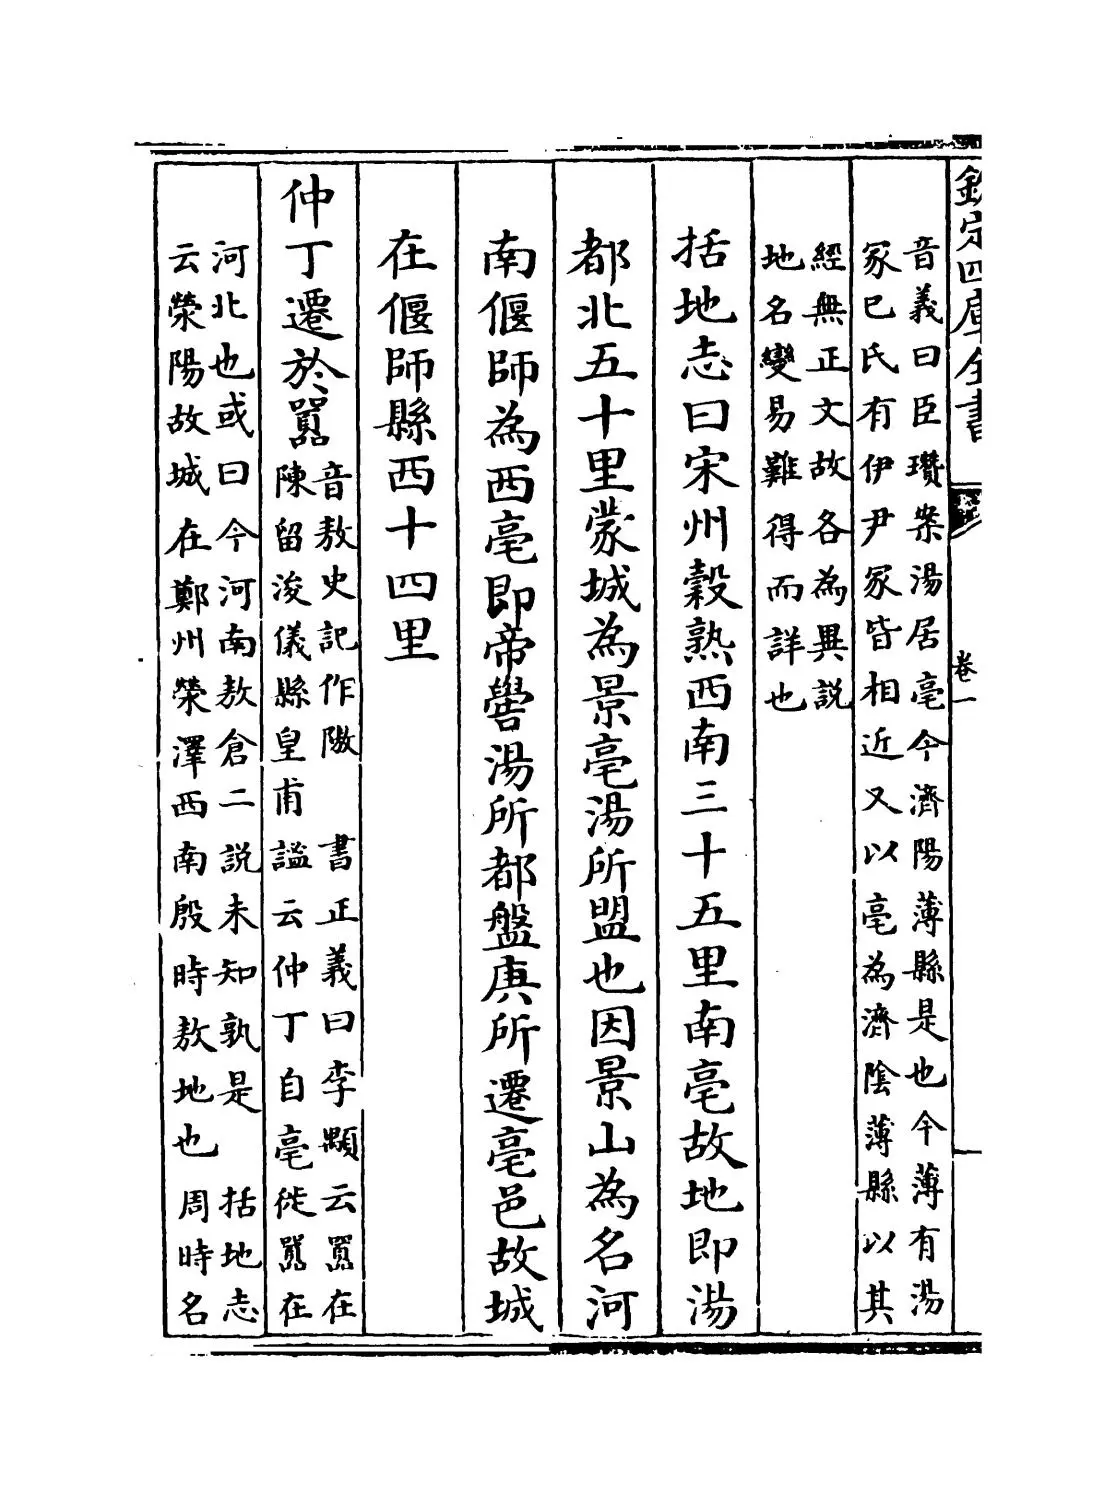 欽定四庫全書
卷一
音義曰臣瓚案湯居亳今濟陽薄縣是也今薄有湯
冢巳氏有伊尹冢皆相近又以亳為濟陰薄縣以其
經無正文故各為異説
地名變易難得而詳也
括地志曰宋州穀熟西南三十五里南亳故地即湯
都北五十里蒙城為景亳湯所盟也因景山為名河
南偃師為西亳即帝嚳湯所都盤庚所遷亳邑故城
在偃師縣西十四里
仲丁遷於囂
音敖史記作隞 書正義曰李顒云囂在
陳留浚儀縣皇甫謐云仲丁自亳徙囂在
河北也或曰今河南敖倉二説未知孰是 括地志
云滎陽故城在鄭州滎澤西南殷時敖地也 周時名